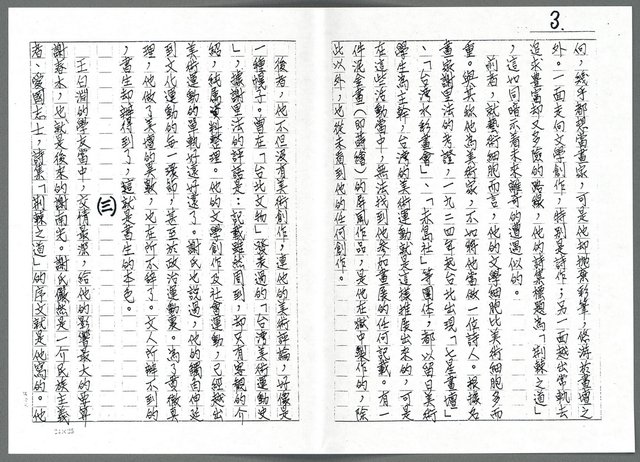 3.
向，幾乎都想當畫家，可是他卻拋棄彩筆，依游於畫壇之
外。一面走向文學創作，特別是詩作；另一面越出常軌去
追求豐富卻又多險的路線，他的詩集標題為「荊棘之道」
，這如同暗示着未來離奇的遭遇似的。
前者，就藝術細胞而言，他的文學細胞比美術細胞多而
重。與其說他為美術家，不如將他當做一位詩人。根據名
畫家謝里法的考證，一九二四年起台北出現「七星畫壇」
、「台灣水彩畫會」、「赤島社」等團体，都以留日美術
學生為主幹，台灣的美術運動就是這樣推展出來的，可是
在這些活動當中，無法找到他參加畫展的任何記載。有一
件泥金畫（即蒔繪）的屏風作品，是他在獄中製作的，除
此以外，也從未看到他的任何創作。
後者，他不但沒有美術創作，連他的美術評論，好像是
一經帳子。曾在「台北文物」發表過的「台灣美術運動史
」，讓謝里法的評語是：記載雖然周到，却只有客觀的介
紹，純為資料整理。他的文學創作及社會運動，已經越出
美術運動的單軌好遠好遠了。謝氏也說過，他的觸角伸延
到文化運動的每一環節，甚至於政治運動裏。為了貫徹真
理，他做了莫僅的莫歎，也在所不辭了。文人所辦不到的
，書生却辦得到了，這就是書生的本色。
(三)
王白淵的學長當中，交情最深，給他的影響最大的要算
謝春木，也就是後來的謝南光。謝氏儼然是一个民族主義
者、愛國志士，詩集「荊棘之道」的序文就是他寫的。他